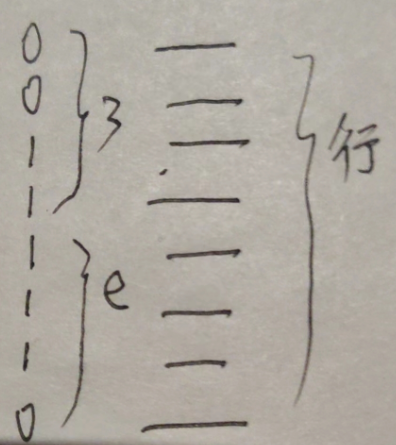 0
0
1
1
1
1
1
0
3
e
行